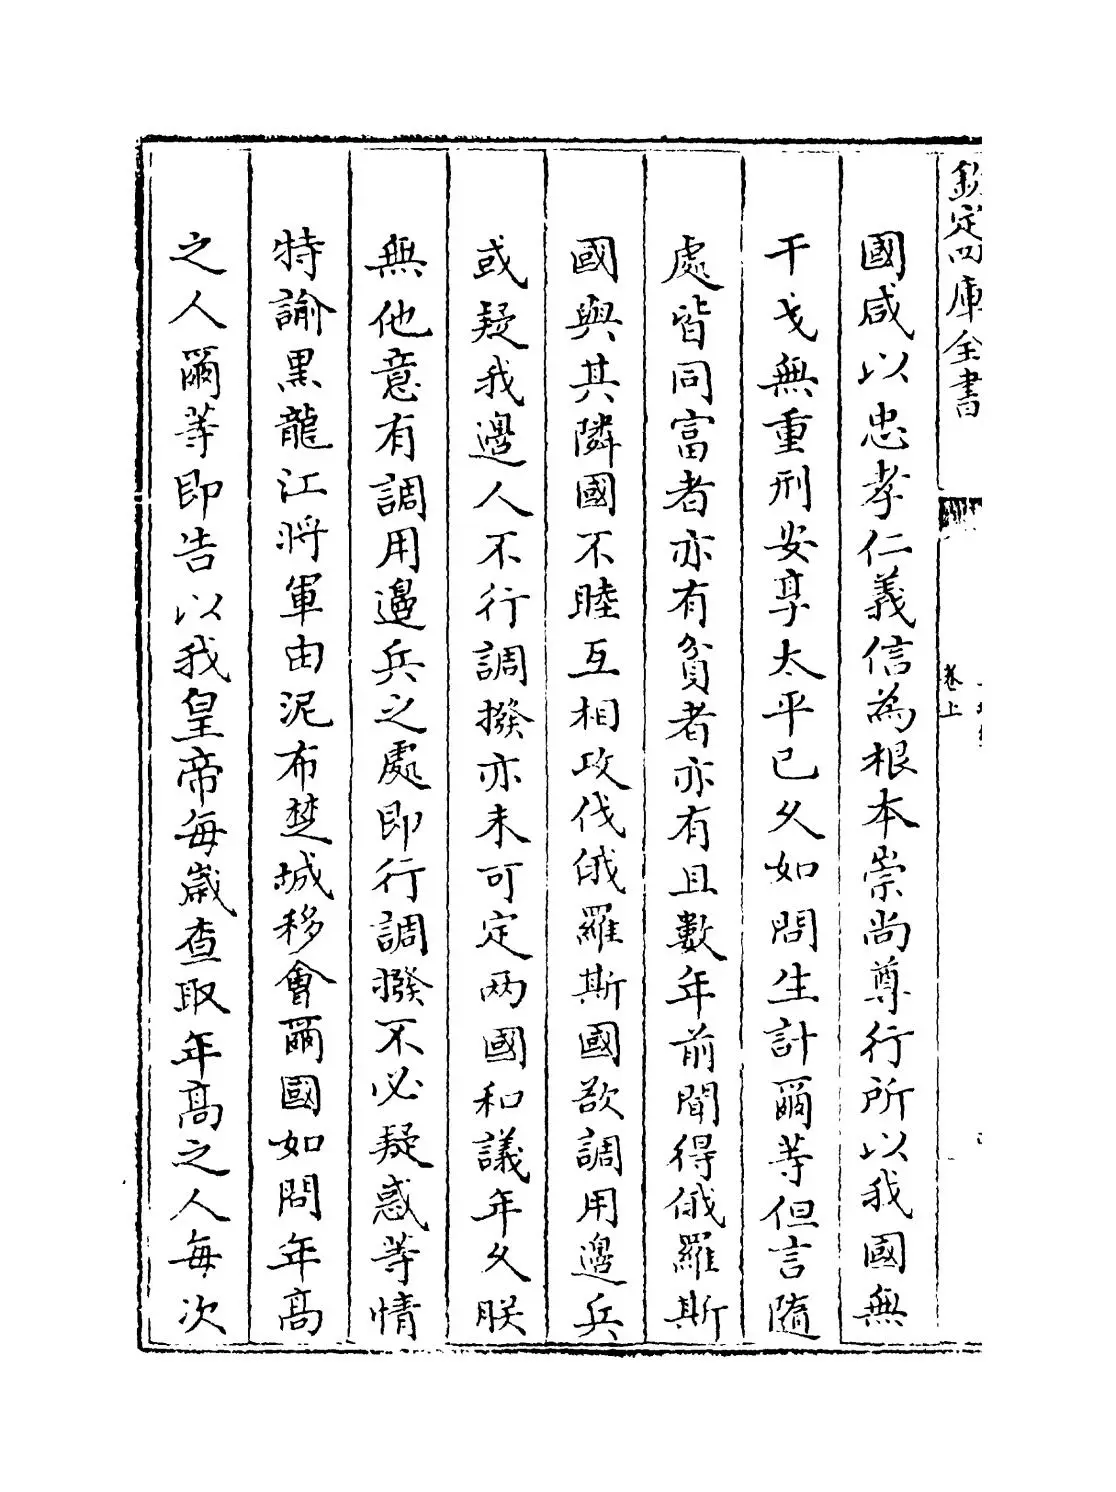 欽定四庫全書
卷上
國咸以忠孝仁義信為根本崇尚尊行所以我國無
干戈無重刑安享太平已久如問生計爾等但言隨
處皆同富者亦有貧者亦有且數年前聞得俄羅斯
國與其隣國不睦互相攻伐俄羅斯國欲調用邊兵
或疑我邊人不行調撥亦未可定兩國和議年久朕
無他意有調用邊兵之處即行調撥不必疑惑等情
特諭黒龍江將軍由泥布楚城移會爾國如問年高
之人爾等即告以我皇帝每歳查取年高之人每次